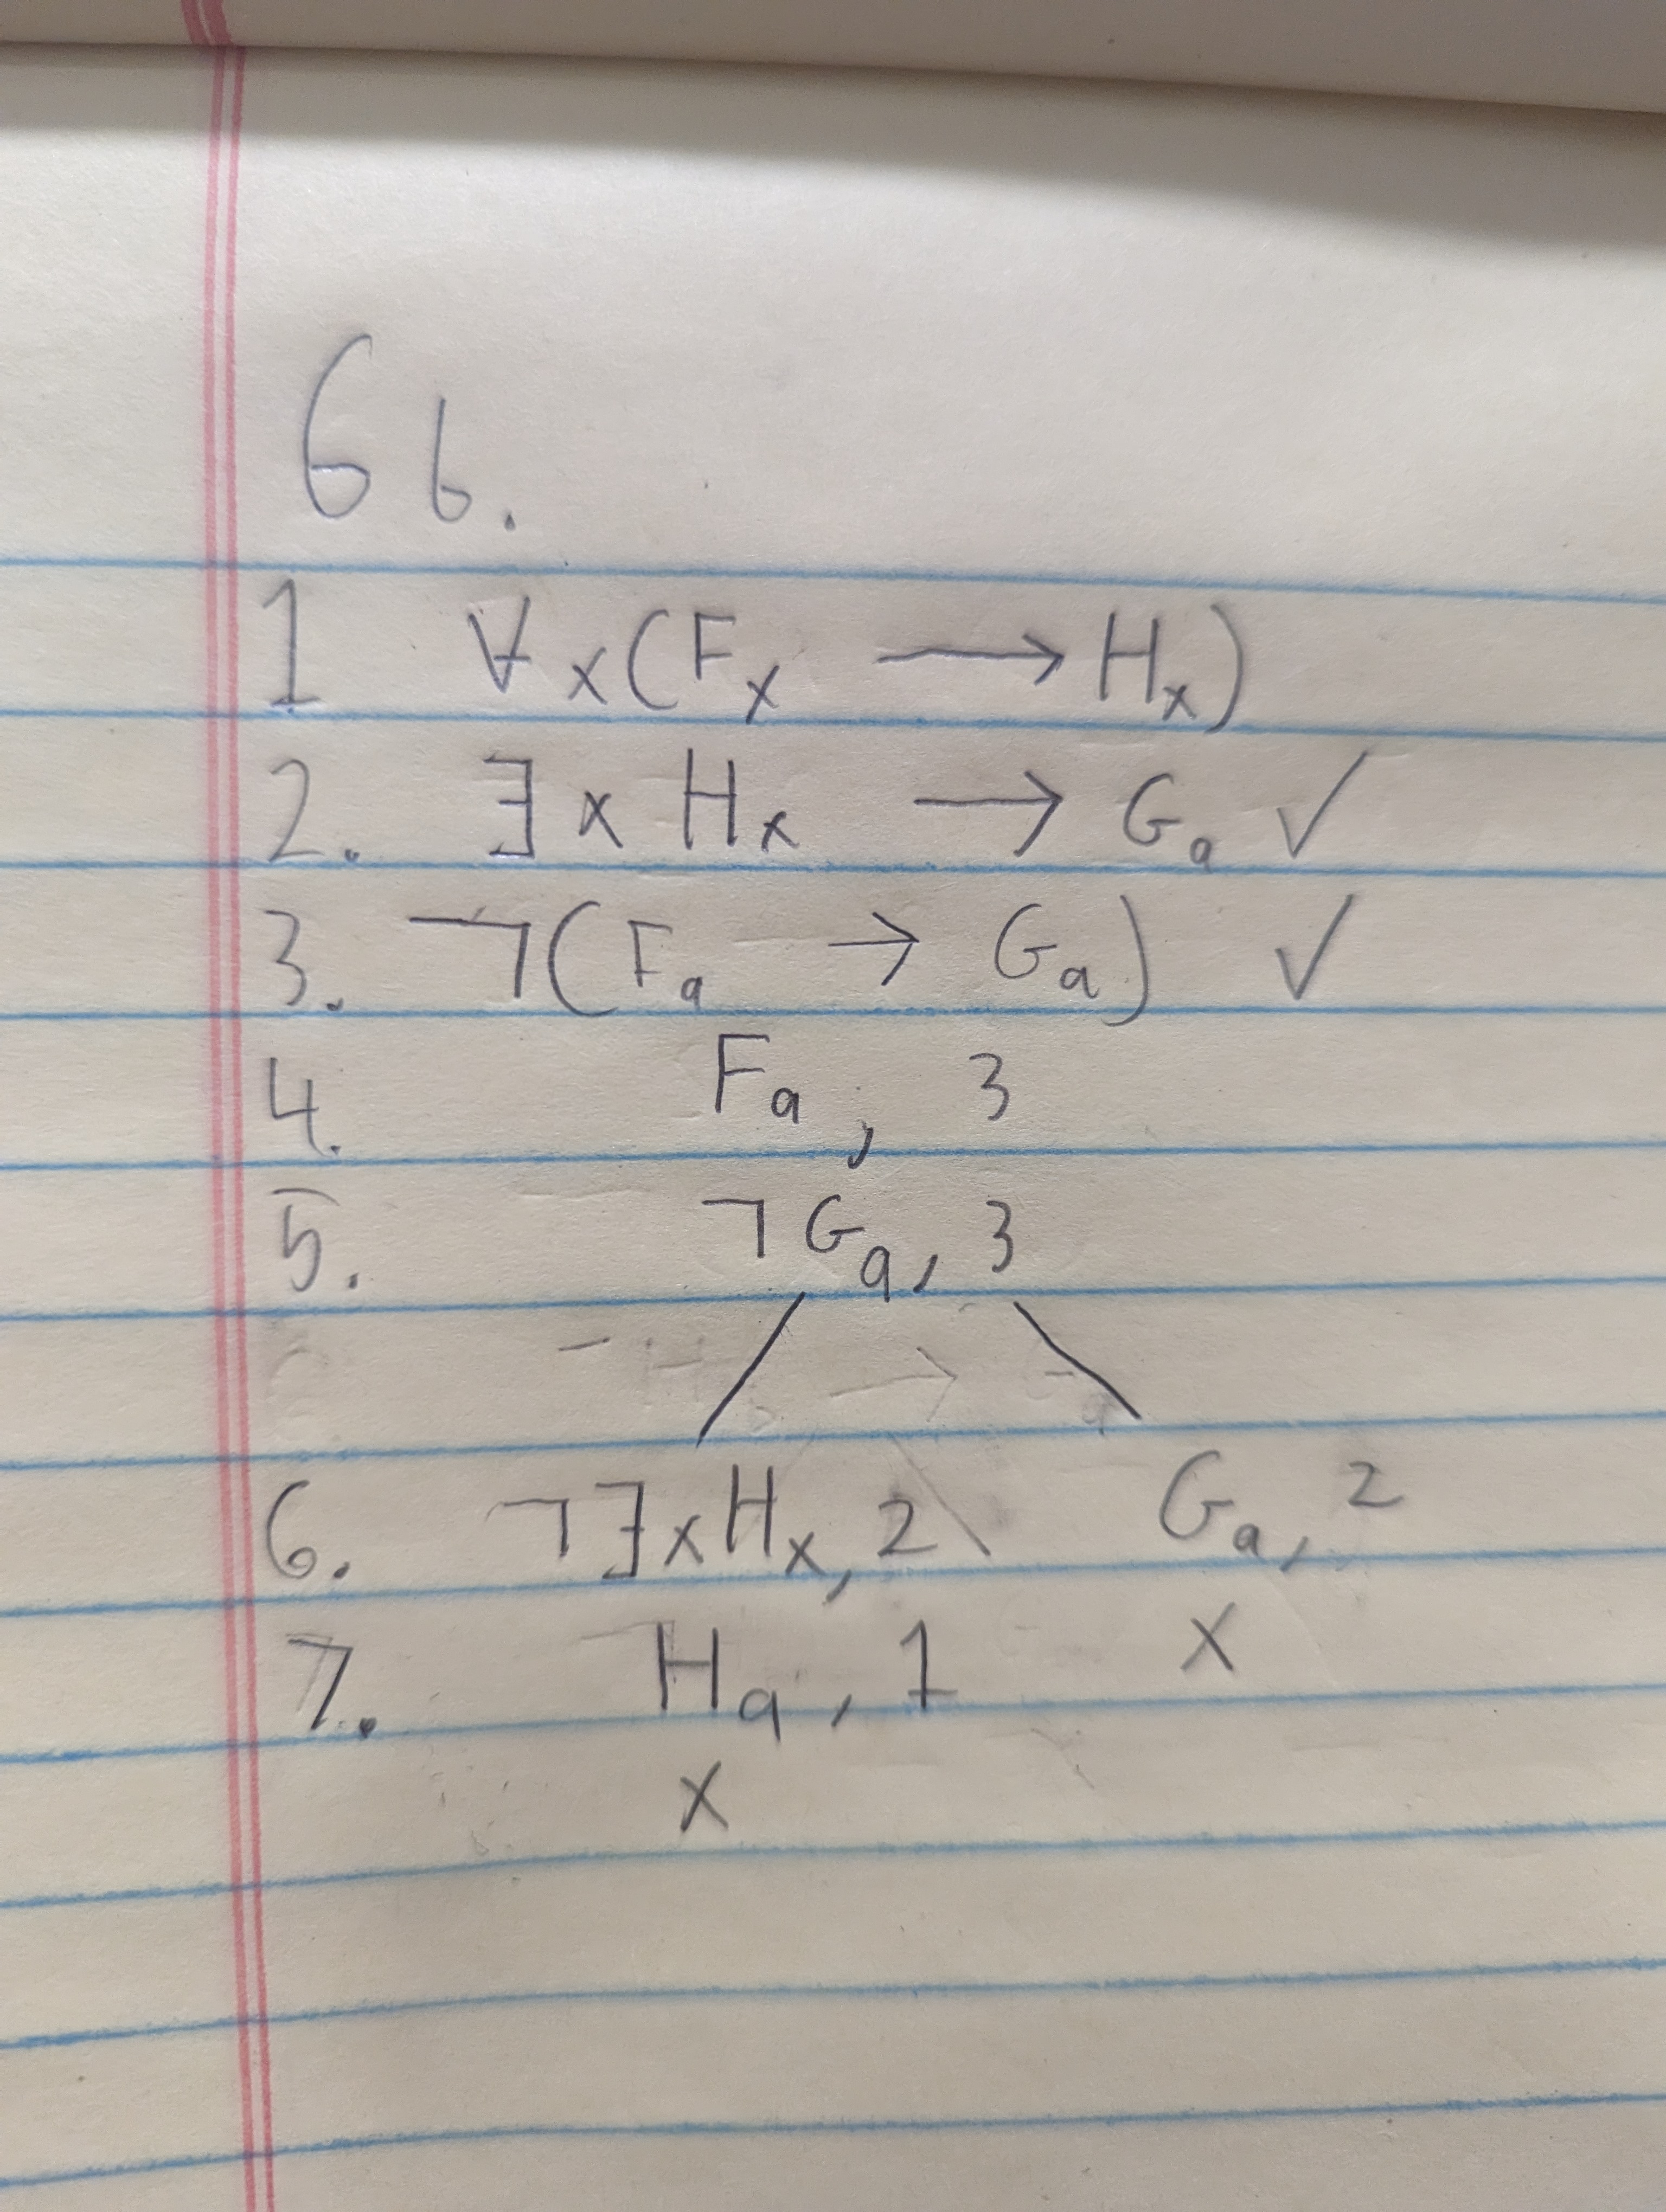 6 b.
1 ∀x(Fx → Hx)
2. ∃xHx → Ga ✓
3. ¬(Fa → Ga) ✓
4. Fa, 3
5. ¬Ga, 3
6. ¬∃xHx, 2 Ga, 2
7. Ha, 1 x
x